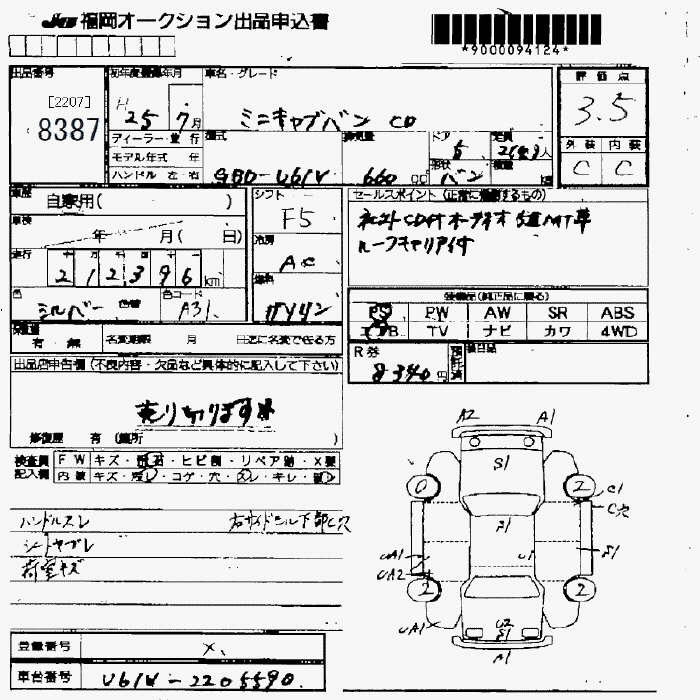 福岡オークション出品申込書
*9000094124*
出品番号
[2207]
8387
初年度登録年月
H 25 7月
車名・グレード
ミニキャブバン CD
評価点
3.5
外装 内装
C C
ディーラー・並行
モデル年式 年
ハンドル 左・右
型式
GBD-U61V
排気量
660 CC
ドア
5
形状
バン
定員
2(4)人
積載
kg
車歴
自家用( )
車検
年 月( 日)
走行
212396km
色
シルバー
色替
色コード
A31
シフト
F5
冷房
AC
燃料
ガソリン
セールスポイント (正常に作動するもの)
社外CDオーディオ 5速MT車
ルーフキャリア付
装備品(純正品に限る)
PS PW AW SR ABS
エアB TV ナビ カワ 4WD
R券
8340円
預託済
後日品
保証書
有・無
名変期限 月 日迄に名変で在る方
出品店申告欄(不良内容・欠品など具体的に記入して下さい)
売り切ります
修復歴 有 (箇所 )
検査員
記入欄
FW キズ・飛石・ヒビ割・リペア跡・X要
内装 キズ・汚レ・コゲ・穴・スレ・キレ・臭い
ハンドルスレ
右サイドシル下部C穴
シートヤブレ
荷室キズ
A2 A1
S1
0 2
C1
C穴
F1
UA1
U1
S1
UA2
2 2
UA1
U2
S1
A1
登録番号
X
車台番号
U61V-2205590